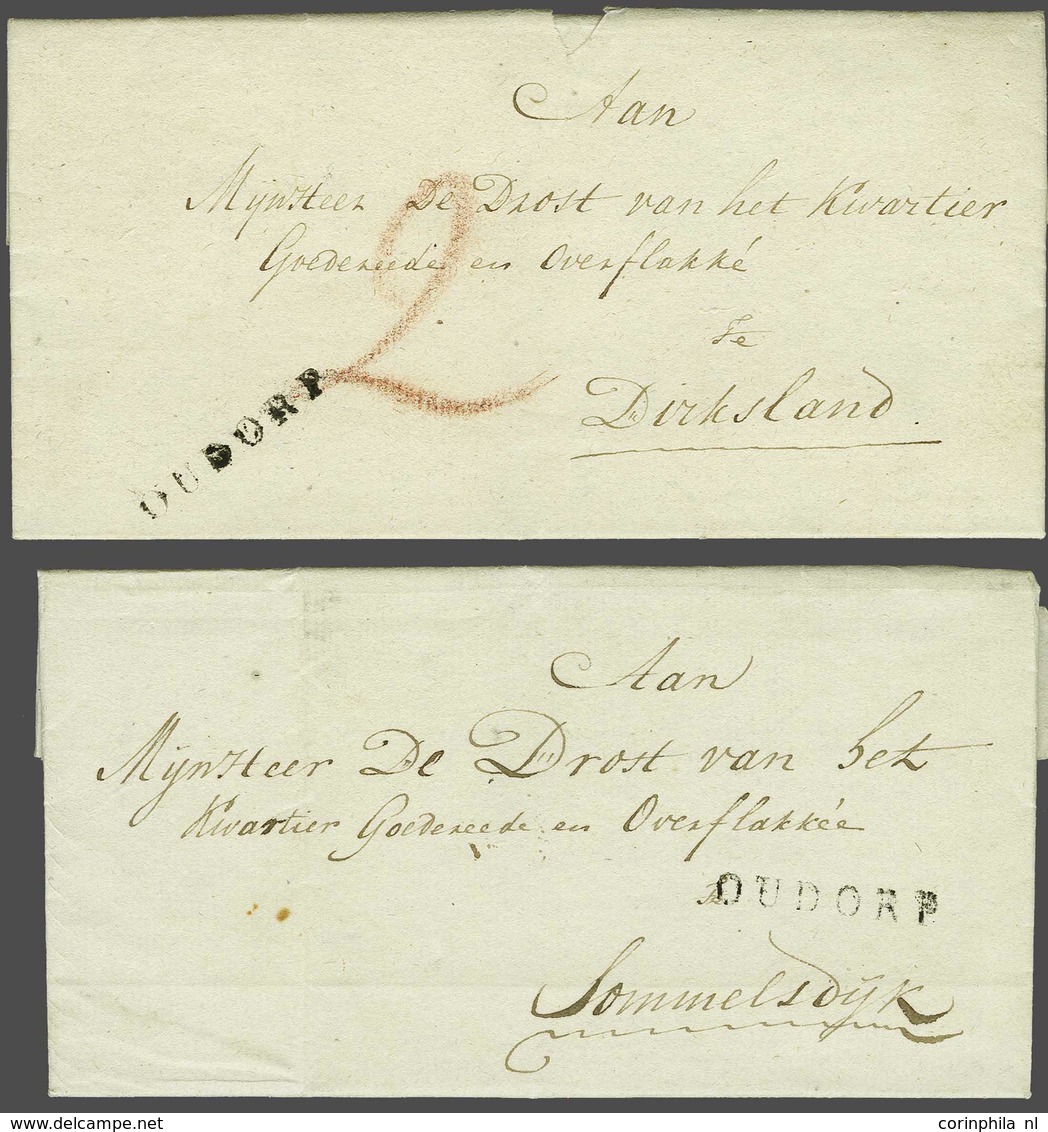 Aan
MynHeer De Drost van het Kwartier
Goedereede en Overflakké
2
Te
Dirksland.
OUDORP
Aan
MynHeer De Drost van het
Kwartier Goedereede en Overflakkée
Te
OUDORP
Sommelsdÿk
www.delcampe.net
corinphila nl